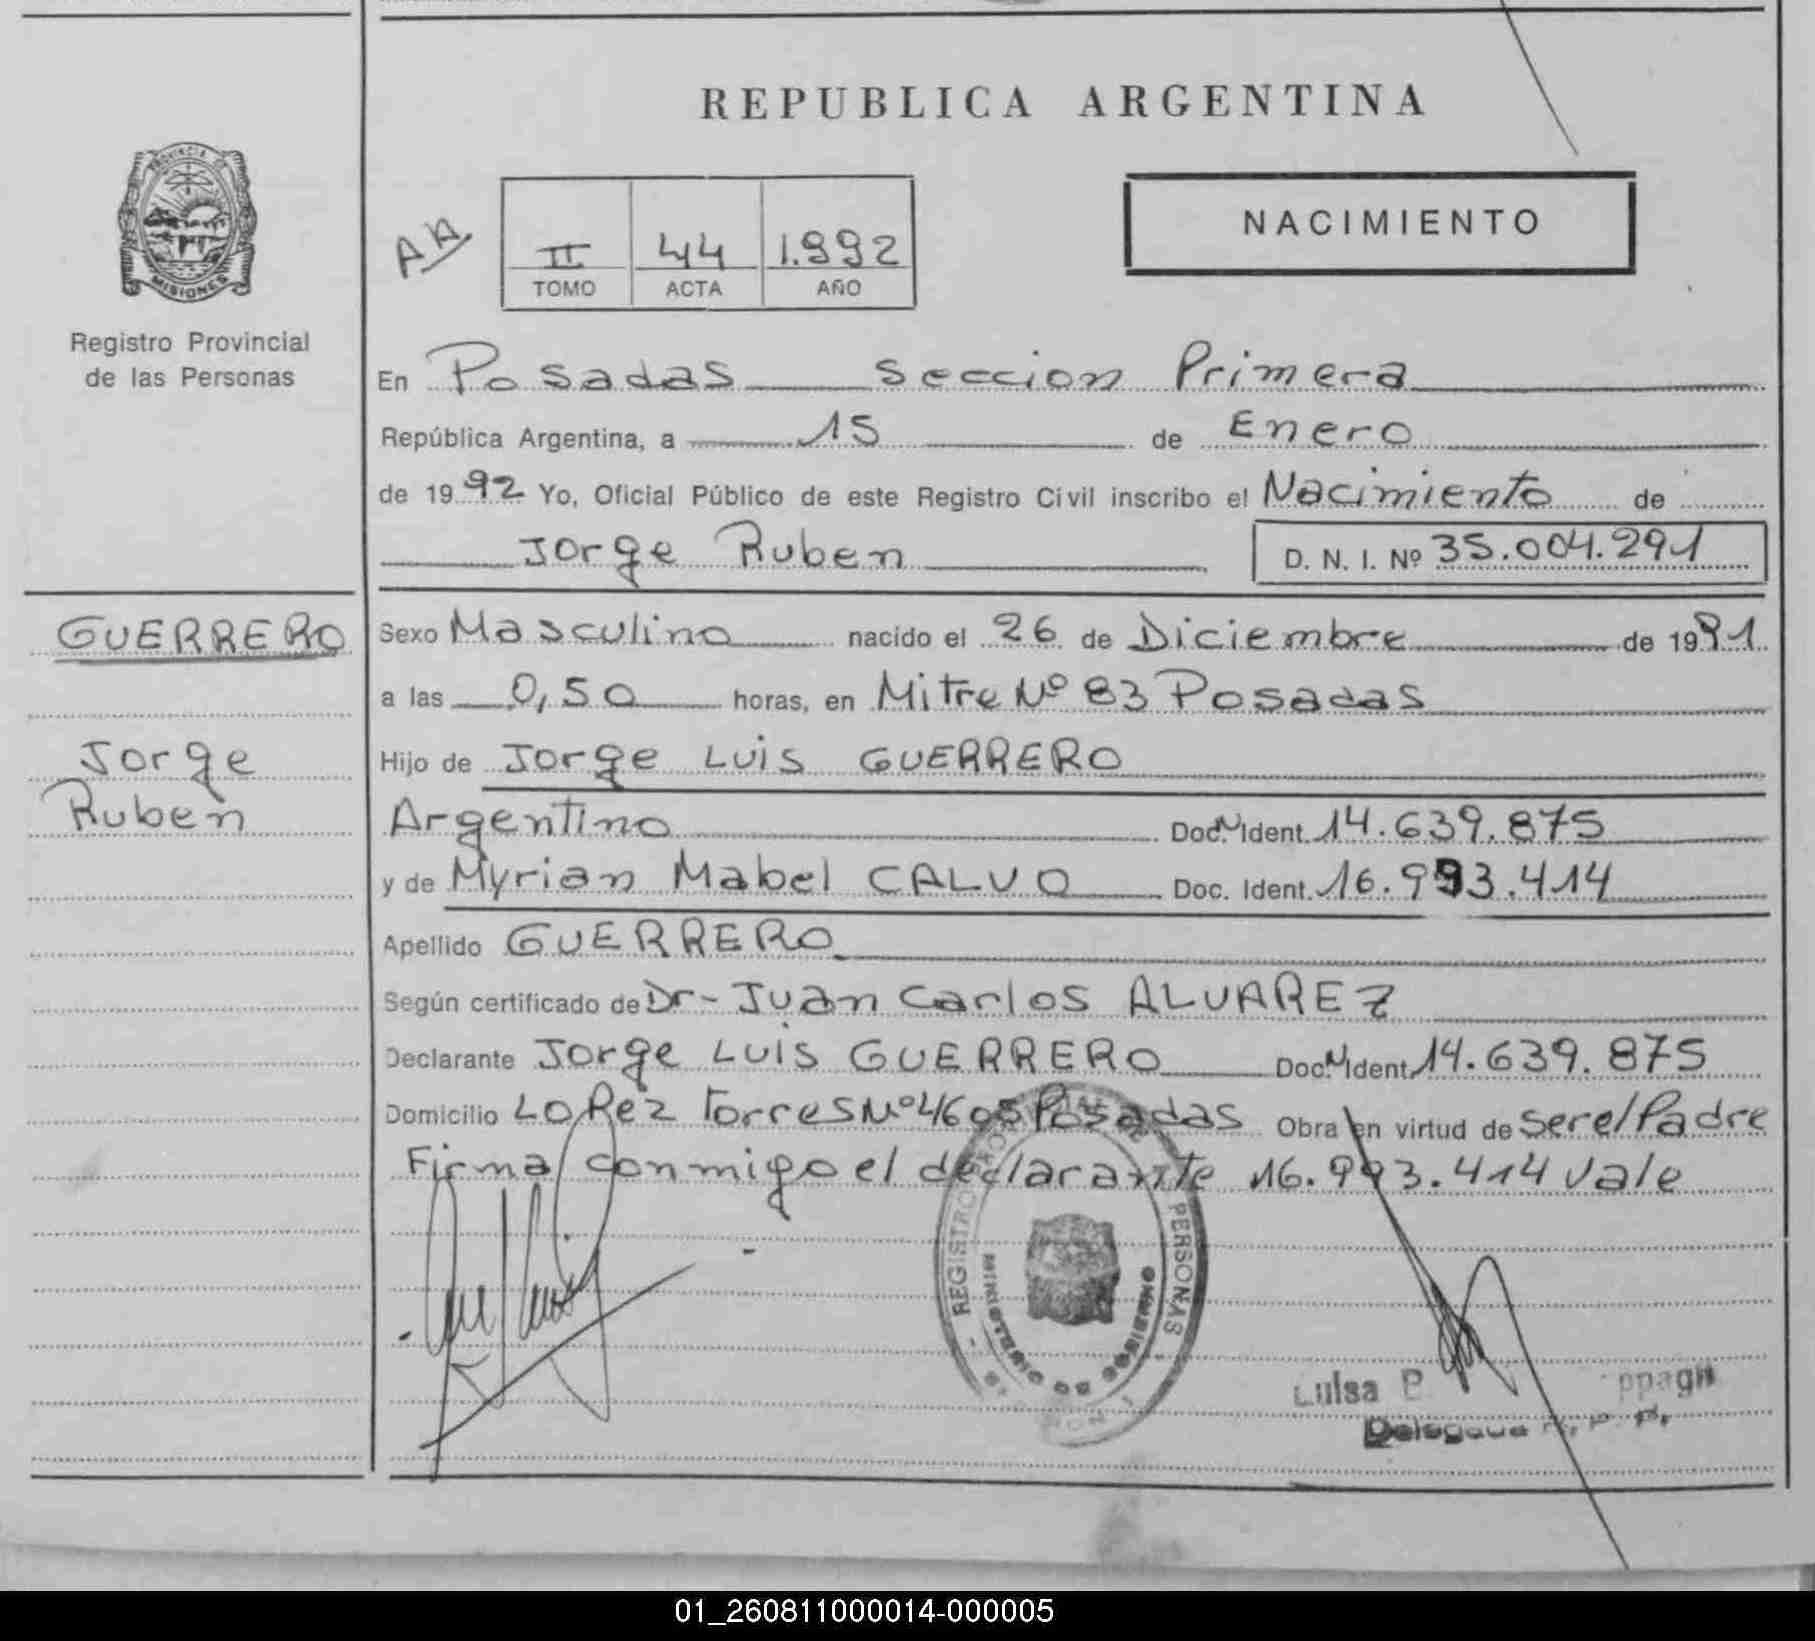 REPUBLICA ARGENTINA
PROVINCIA DE
MISIONES
Registro Provincial
de las Personas
AA
II 44 1.992
TOMO ACTA AÑO
NACIMIENTO
En Posadas Seccion Primera
República Argentina, a 15 de Enero
de 1992 Yo, Oficial Público de este Registro Civil inscribo el Nacimiento de
Jorge Ruben D. N. I. Nº 35.004.291
GUERRERO
Jorge
Ruben
Sexo Masculino nacido el 26 de Diciembre de 1991
a las 0,50 horas, en Mitre Nº 83 Posadas
Hijo de Jorge Luis GUERRERO
Argentino Doc. N Ident. 14.639.875
y de Myrian Mabel CALVO Doc. Ident. 16.993.414
Apellido GUERRERO
Según certificado de Dr- Juan Carlos ALVAREZ
Declarante Jorge Luis GUERRERO Doc. N Ident. 14.639.875
Domicilio LOPez Torres Nº 4605 Posadas Obra en virtud de ser el Padre
Firma conmigo el declarante 16.993.414 Vale
REGISTRO PROVINCIAL DE PERSONAS
MINISTERIO DE GOBIERNO
Luisa
Delegada R. P. P.
01_260811000014-000005